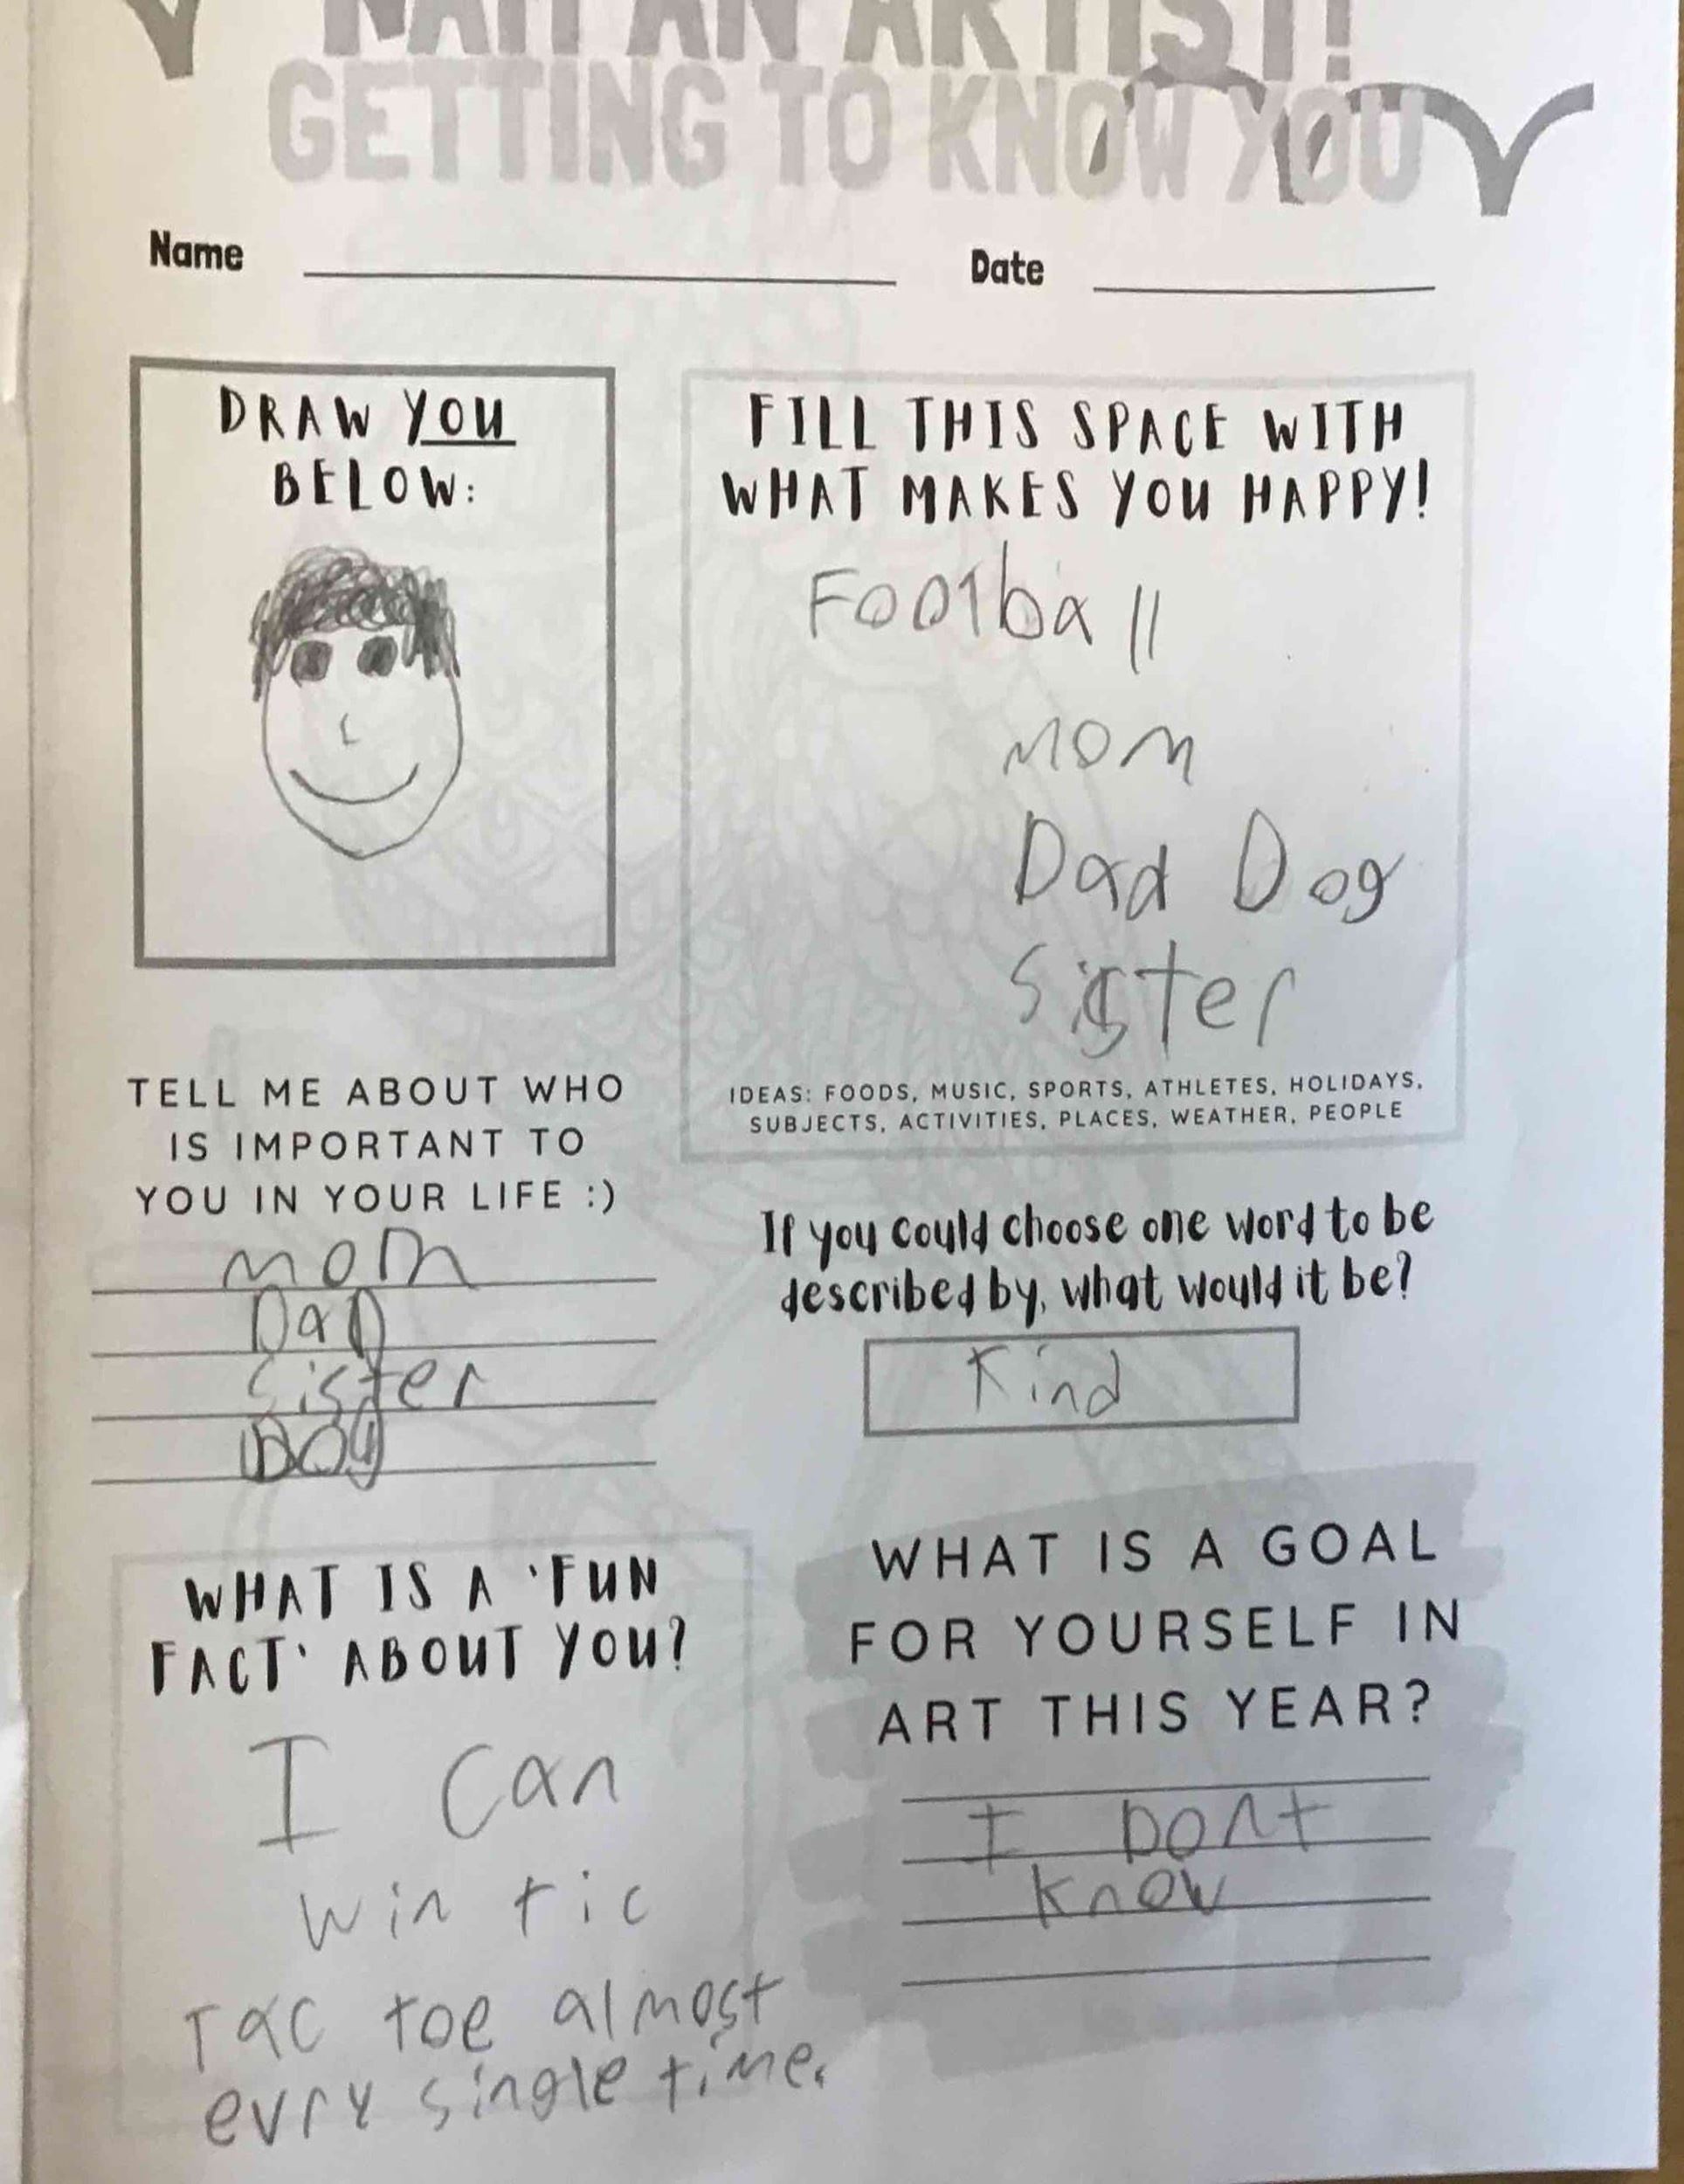 I AM AN ARTIST!
GETTING TO KNOW YOU
Name
Date
DRAW YOU
BELOW:
FILL THIS SPACE WITH
WHAT MAKES YOU HAPPY!
Football
Mom
Dad Dog
Sister
IDEAS: FOODS, MUSIC, SPORTS, ATHLETES, HOLIDAYS,
SUBJECTS, ACTIVITIES, PLACES, WEATHER, PEOPLE
TELL ME ABOUT WHO
IS IMPORTANT TO
YOU IN YOUR LIFE :)
mom
DaD
Sister
Dog
If you could choose one word to be
described by, what would it be?
Kind
WHAT IS A 'FUN
FACT' ABOUT YOU?
I can
win tic
Tac toe almost
evry single time.
WHAT IS A GOAL
FOR YOURSELF IN
ART THIS YEAR?
I Dont
know